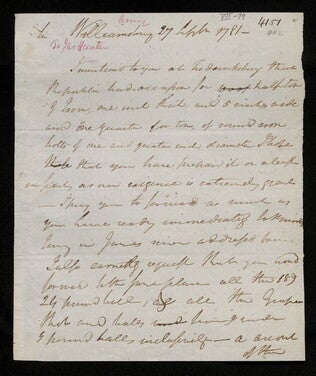 Williamsburg 27 Septr 1781 —
VII-19
4151
To Jas Hunter
I mentioned to you at Fredericksburg that
Republic had occasion for half ton
of Iron, one inch thick, and inches wide
and one quarter of a ton, of round iron
bolts of one and quarter inch diameter I hope
that you have prepared it or at least
in part, as our exigence is extremely great
I pray you to forward as much as
you have ready immediately
in James river addressed
I also earnestly request that you would
forward to the same place all the 18 &
24 pound ball, as also all the Grape
shot and balls under
9 pound balls inclusively — a account
of the